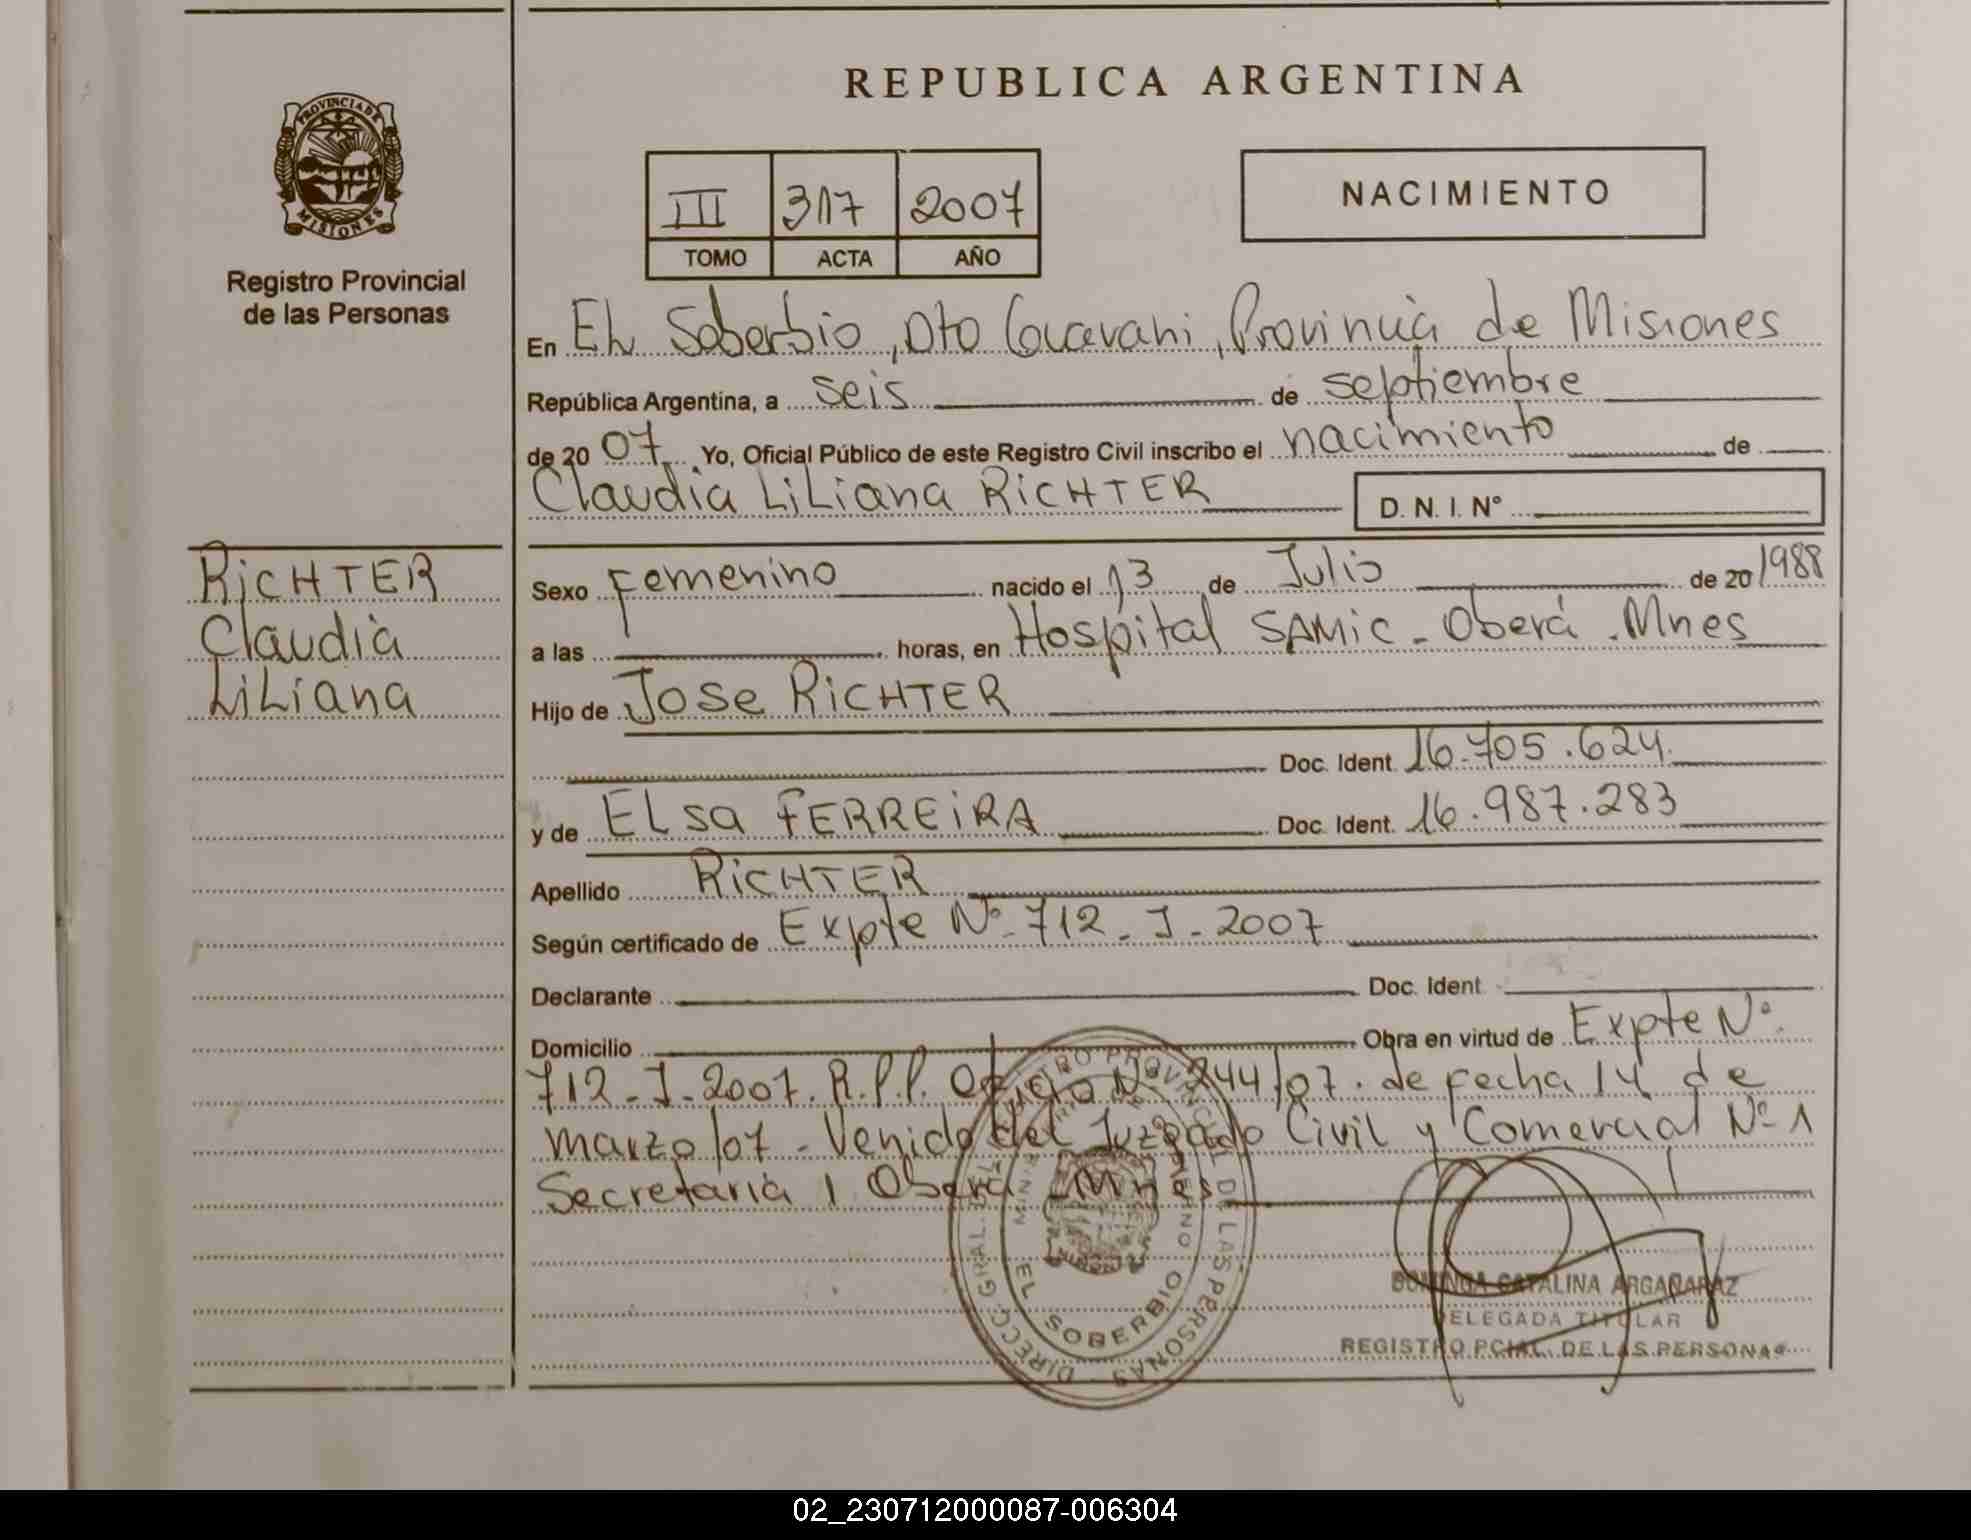 REPUBLICA ARGENTINA
PROVINCIA DE
MISIONES
Registro Provincial
de las Personas
III 317 2007
TOMO ACTA AÑO
NACIMIENTO
En EL Soberbio, Dto Guaraní, Provincia de Misiones
República Argentina, a seis de septiembre
de 20 07. Yo, Oficial Público de este Registro Civil inscribo el nacimiento de
Claudia LiLiana RiCHTER D. N. I. N°
RiCHTER
Claudia
LiLiana
Sexo Femenino nacido el 13 de Julio de 20 1988
a las horas, en Hospital SAMIC - Oberá - Mnes
Hijo de Jose RiCHTER
Doc. Ident. 16.705.624
y de ELsa FERREiRA Doc. Ident. 16.987.283
Apellido RiCHTER
Según certificado de Expte N° 712 - J - 2007
Declarante Doc. Ident.
Domicilio Obra en virtud de Expte N°
712 - J - 2007. R.P.P. Oficio N° 244/07. de fecha 14 de
marzo/07 - Venido del Juzgado Civil y Comercial N° 1
Secretaria 1 Oberá - Mnes
DIRECC. GRAL. DEL REGISTRO PROVINCIAL DE LAS PERSONAS
EL SOBERBIO
DOMINGA CATALINA ARGAÑARAZ
DELEGADA TITULAR
REGISTRO PCIAL. DE LAS PERSONAS
02_230712000087-006304